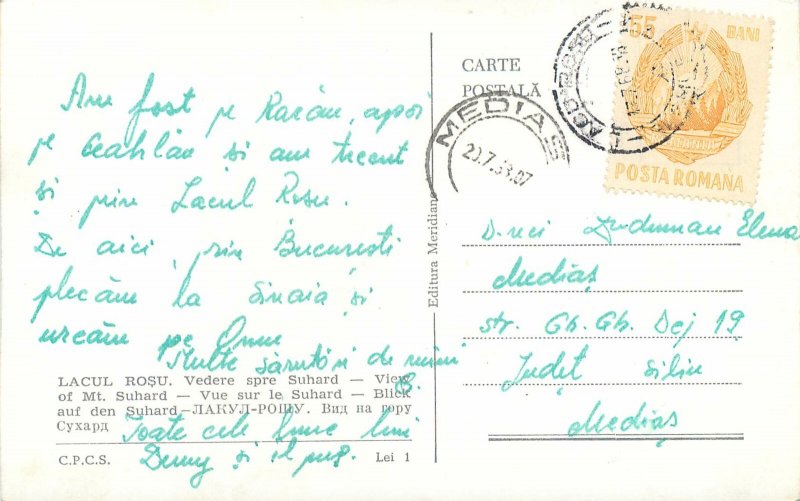 Am fost pe Rarău, apoi
pe Ceahlău și am trecut
și prin Lacul Roșu.
De aici, prin București
plecăm la Sinaia și
urcăm pe Omu
Multe sărutări de mâini
LACUL ROȘU. Vedere spre Suhard — View
of Mt. Suhard — Vue sur le Suhard — Blick
auf den Suhard — ЛАКУЛ-РОШУ. Вид на гору
Сухард
Toate cele bune
și
C.P.C.S. Lei 1
Editura Meridiane
CARTE
POȘTALĂ
MEDIAȘ
55 BANI
POSTA ROMANA
D-nei Elena
Mediaș
str. Gh. Gh. Dej 19
Județ Sibiu
Mediaș